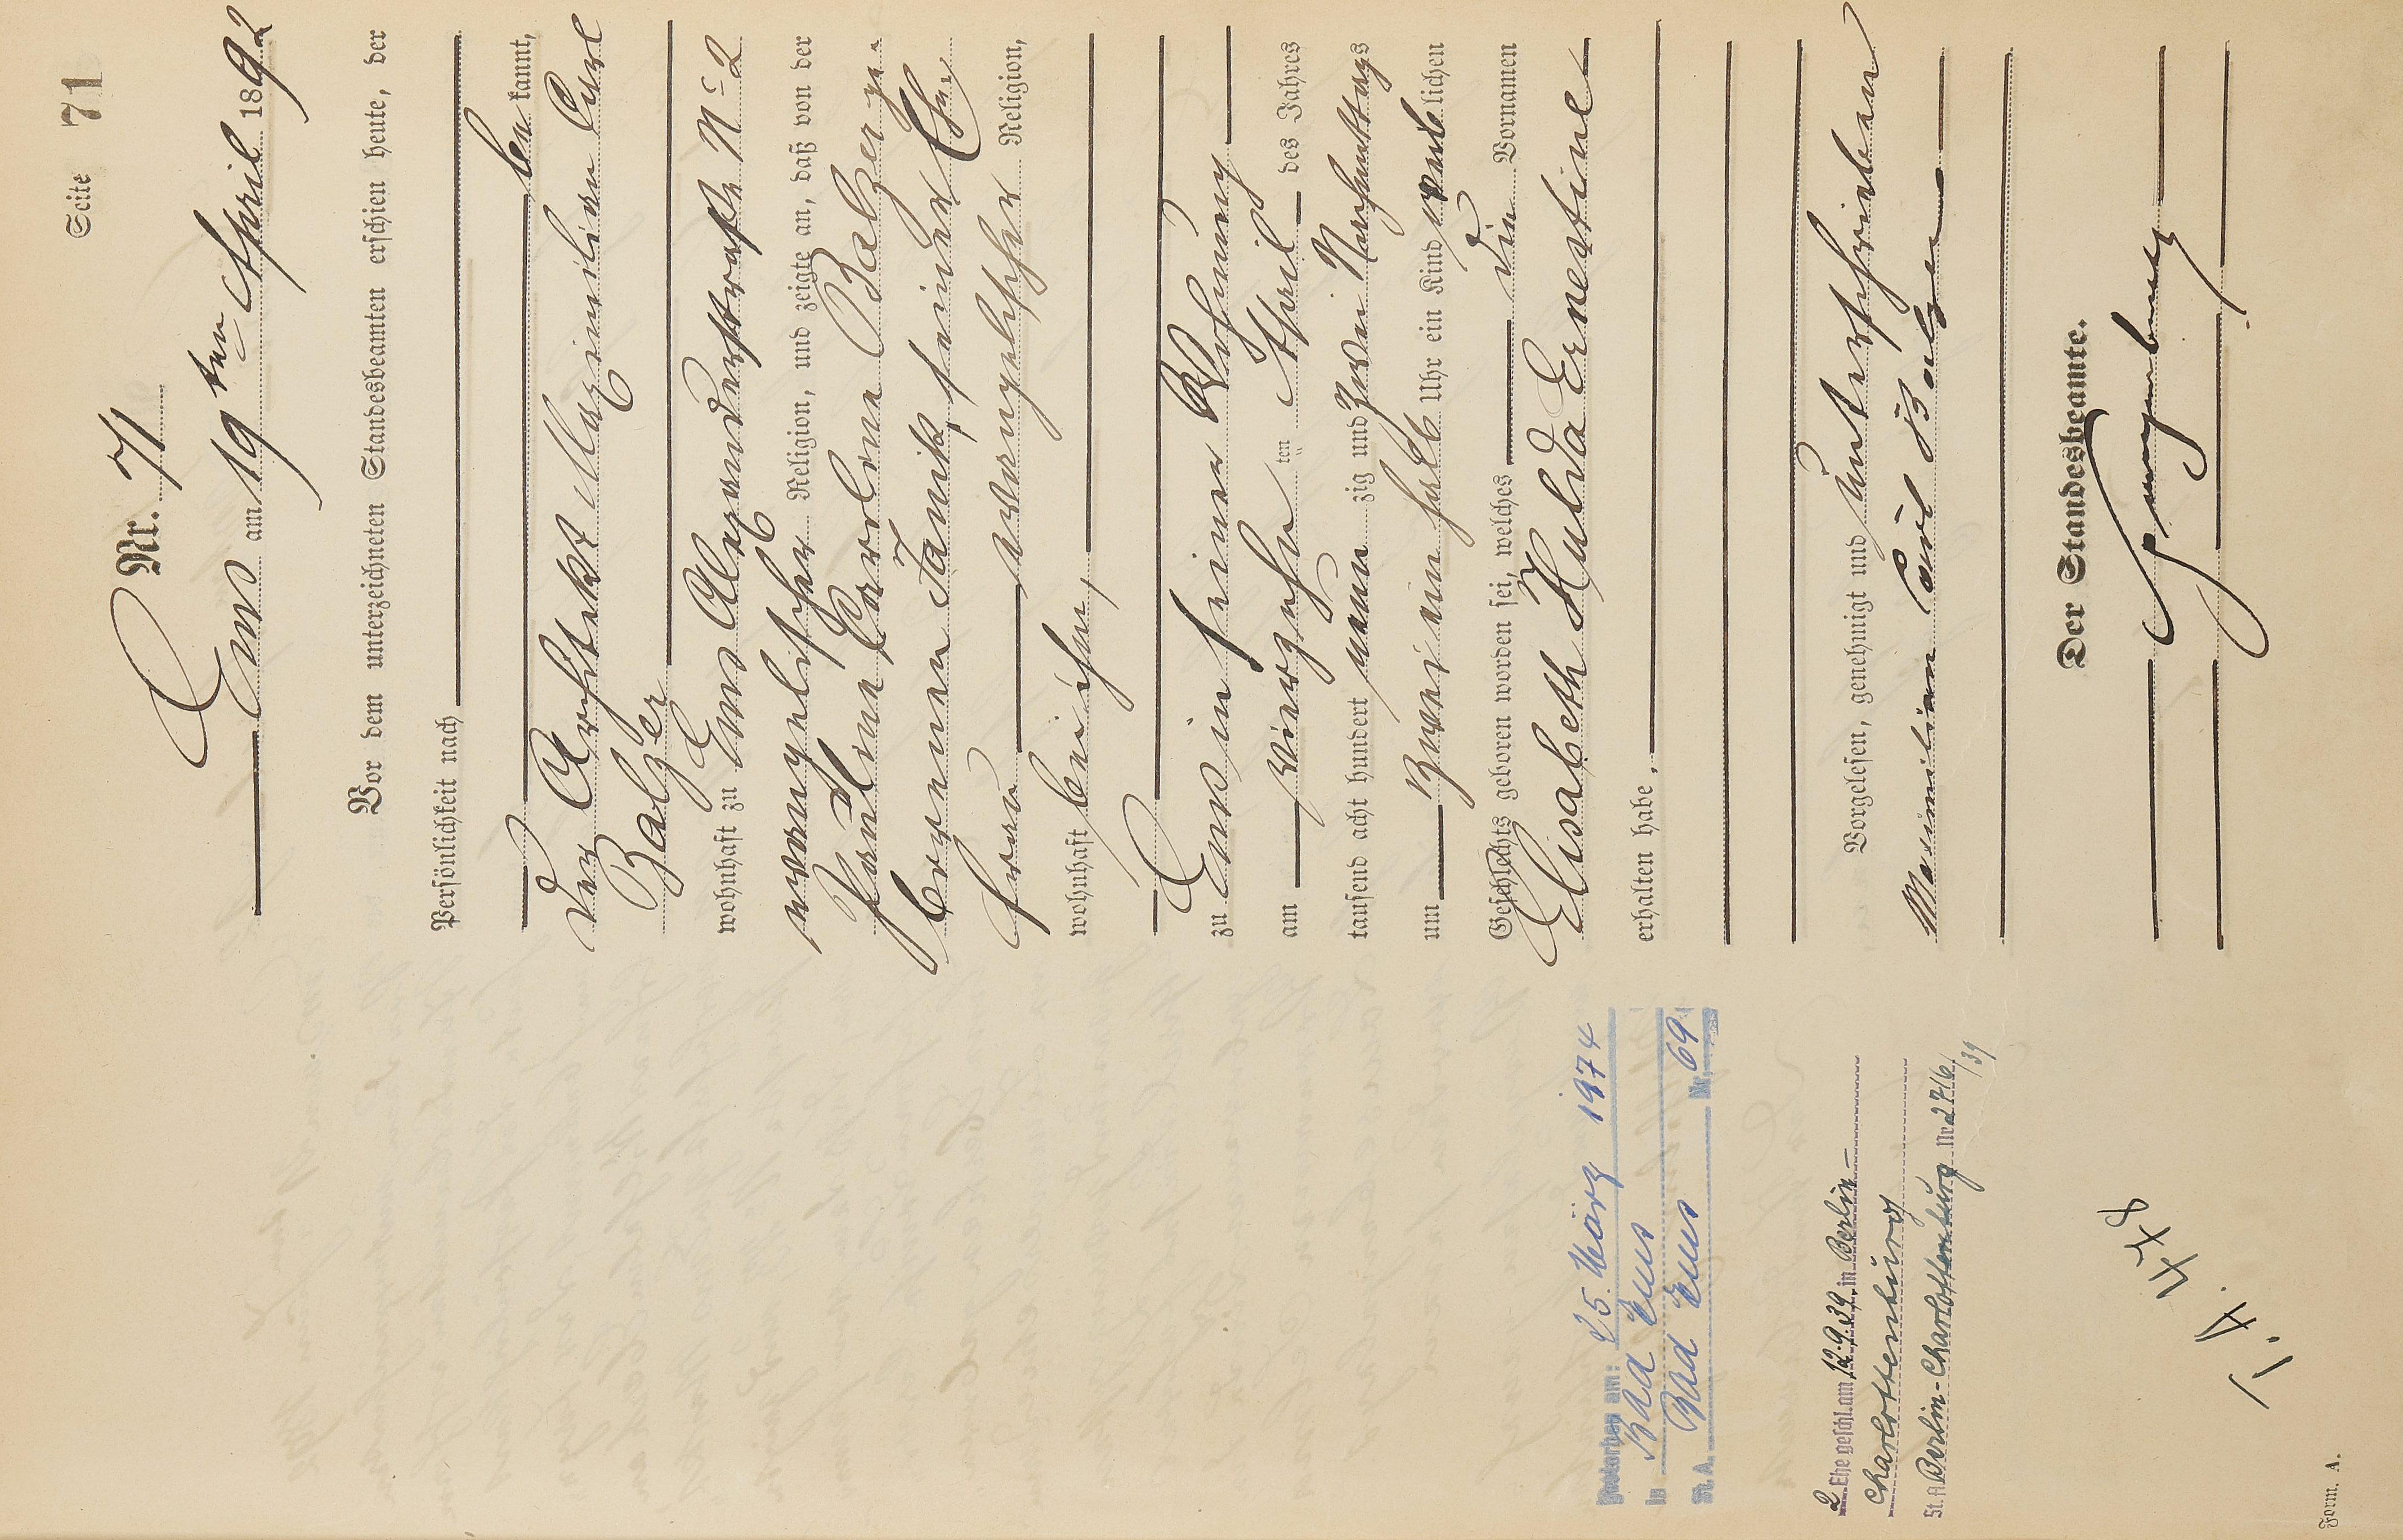 Seite 71
Nr. 71
Ems am 19ten April 1892
Vor dem unterzeichneten Standesbeamten erschien heute, der
Persönlichkeit nach
be kannt,
der Architekt Maximilian Carl
Balzer
wohnhaft zu Ems Alexanderstraße No 2
evangelischer Religion, und zeigte an, daß von der
Pauline Caroline Balzer ge-
borenen Janik, seiner Ehe-
frau evangelischer Religion,
wohnhaft bei ihm,
zu Ems in seiner Wohnung
am vierzehn ten April des Jahres
tausend acht hundert neun zig und zwei Nachmittags
um zwei ein halb Uhr ein Kind weib lichen
Geschlechts geboren worden sei, welches die Vornamen
Elisabeth Hulda Ernestine
erhalten habe.
Vorgelesen, genehmigt und unterschrieben
Maximilian Carl Balzer
Der Standesbeamte.
Gestorben am: 25. März 1974
in Bad Ems
St. A. Bad Ems Nr. 69
2. Ehe geschl. am 12.9.39. in Berlin-
Charlottenburg
St. A. Berlin-Charlottenburg Nr. 2716
/39
Form. A.